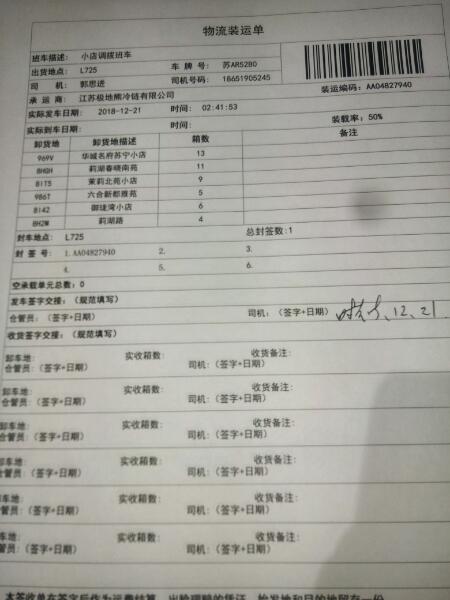 物流装运单
班车描述: 小店调拨班车
出货地点: L725 车牌号: 苏AR5280
司机: 郭思进 司机号码: 18651905245
承运商: 江苏极地熊冷链有限公司 装运编码: AA04827940
实际发车日期: 2018-12-21 时间: 02:41:53
实际到车日期: 时间: 装载率: 50%
卸货地 卸货地描述 箱数 备注
969V 华城名府苏宁小店 13
8HQH 莉湖春晓南苑 11
81T5 茉莉北苑小店 9
986T 六合新都雅苑 5
8142 御珑湾小店 6
8H2W 莉湖路 4
封车地点: L725 总封签数:1
封签号: 1.AA04827940 2. 3.
4. 5. 6.
空承载单元总数: 0
发车签字交接: (规范填写)
仓管员: (签字+日期) 司机: (签字+日期) 12.21.
收货签字交接: (规范填写)
卸车地: 实收箱数: 收货备注:
仓管员: (签字+日期) 司机: (签字+日期)
卸车地: 实收箱数: 收货备注:
仓管员: (签字+日期) 司机: (签字+日期)
卸车地: 实收箱数: 收货备注:
仓管员: (签字+日期) 司机: (签字+日期)
卸车地: 实收箱数: 收货备注:
仓管员: (签字+日期) 司机: (签字+日期)
车地: 实收箱数: 收货备注:
管员: (签字+日期) 司机: (签字+日期)
车地: 实收箱数: 收货备注:
管员: (签字+日期) 司机: (签字+日期)
本签收单在签字后作为运费结算、出险理赔的凭证，始发地和目的地留存一份